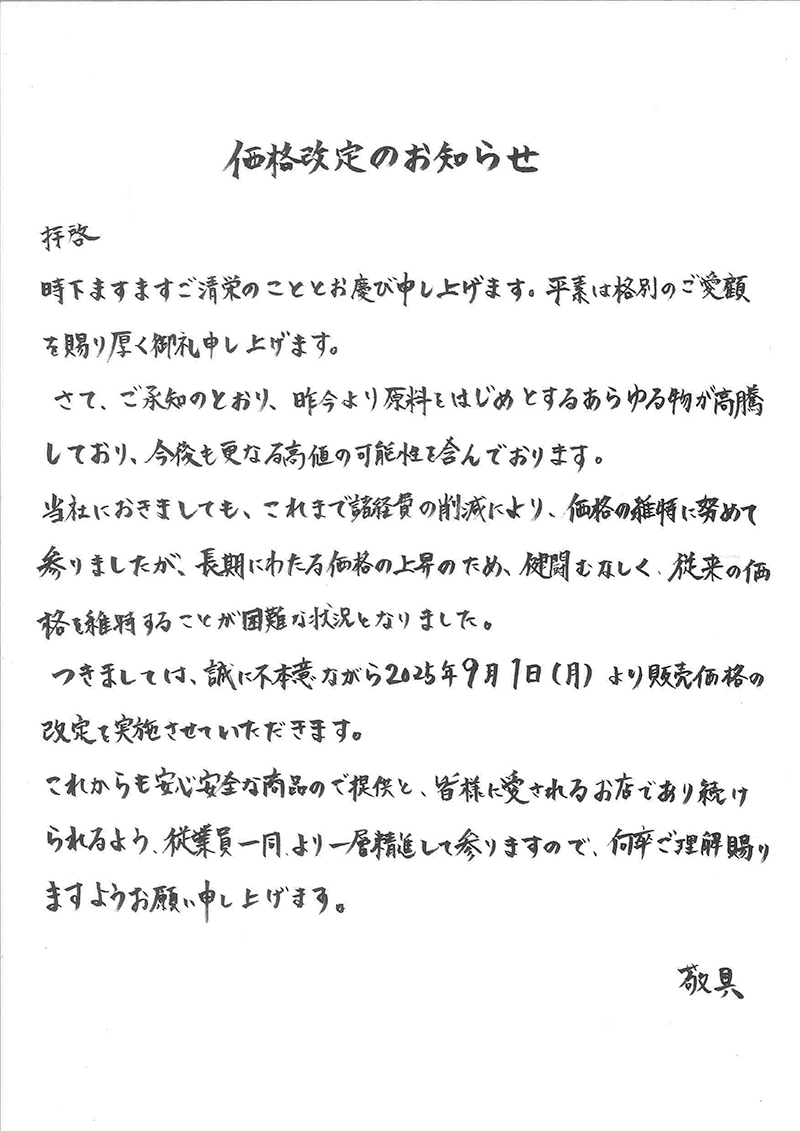 価格改定のお知らせ
拝啓
時下ますますご清栄のこととお慶び申し上げます。平素は格別のご愛顧
を賜り厚く御礼申し上げます。
さて、ご承知のとおり、昨今より原料をはじめとするあらゆる物が高騰
しており、今後も更なる高値の可能性を含んでおります。
当社におきましても、これまで諸経費の削減により、価格の維持に努めて
参りましたが、長期にわたる価格の上昇のため、健闘むなしく、従来の価
格を維持することが困難な状況となりました。
つきましては、誠に不本意ながら2025年9月1日(月)より販売価格の
改定を実施させていただきます。
これからも安心安全な商品のご提供と、皆様に愛されるお店であり続け
られるよう、従業員一同、より一層精進して参りますので、何卒ご理解賜り
ますようお願い申し上げます。
敬具